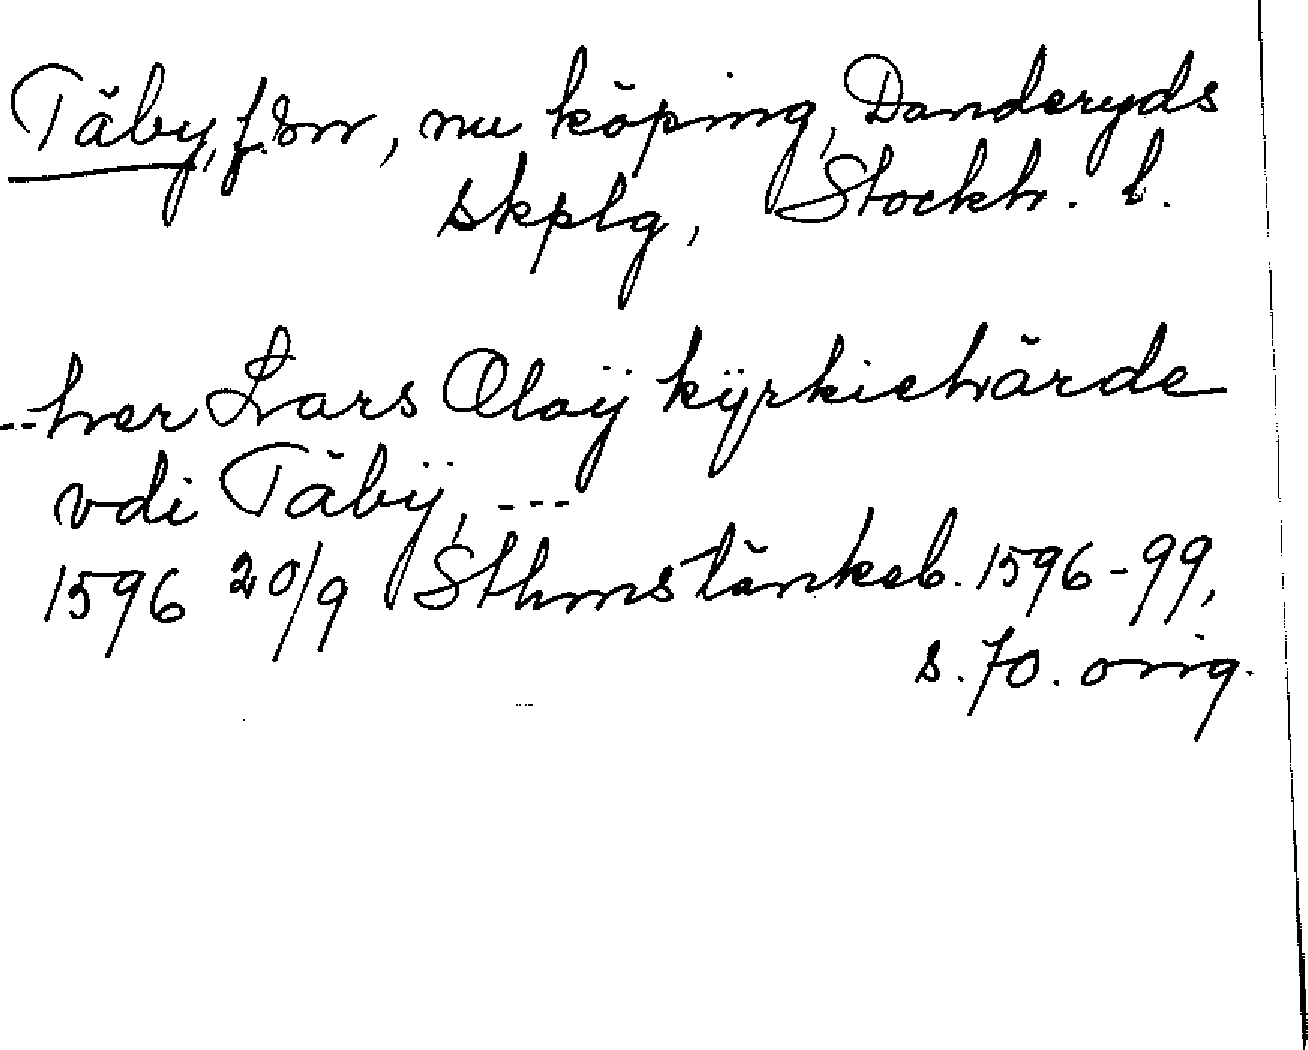 Täby, f. sn, nu köping, Danderyds
skplg, Stockh. l.
--- her Lars Olaÿ kÿrkieherde
vdi Täbÿ, ---
1596 20/9 Sthms tänkeb. 1596-99,
s. 70. orig.